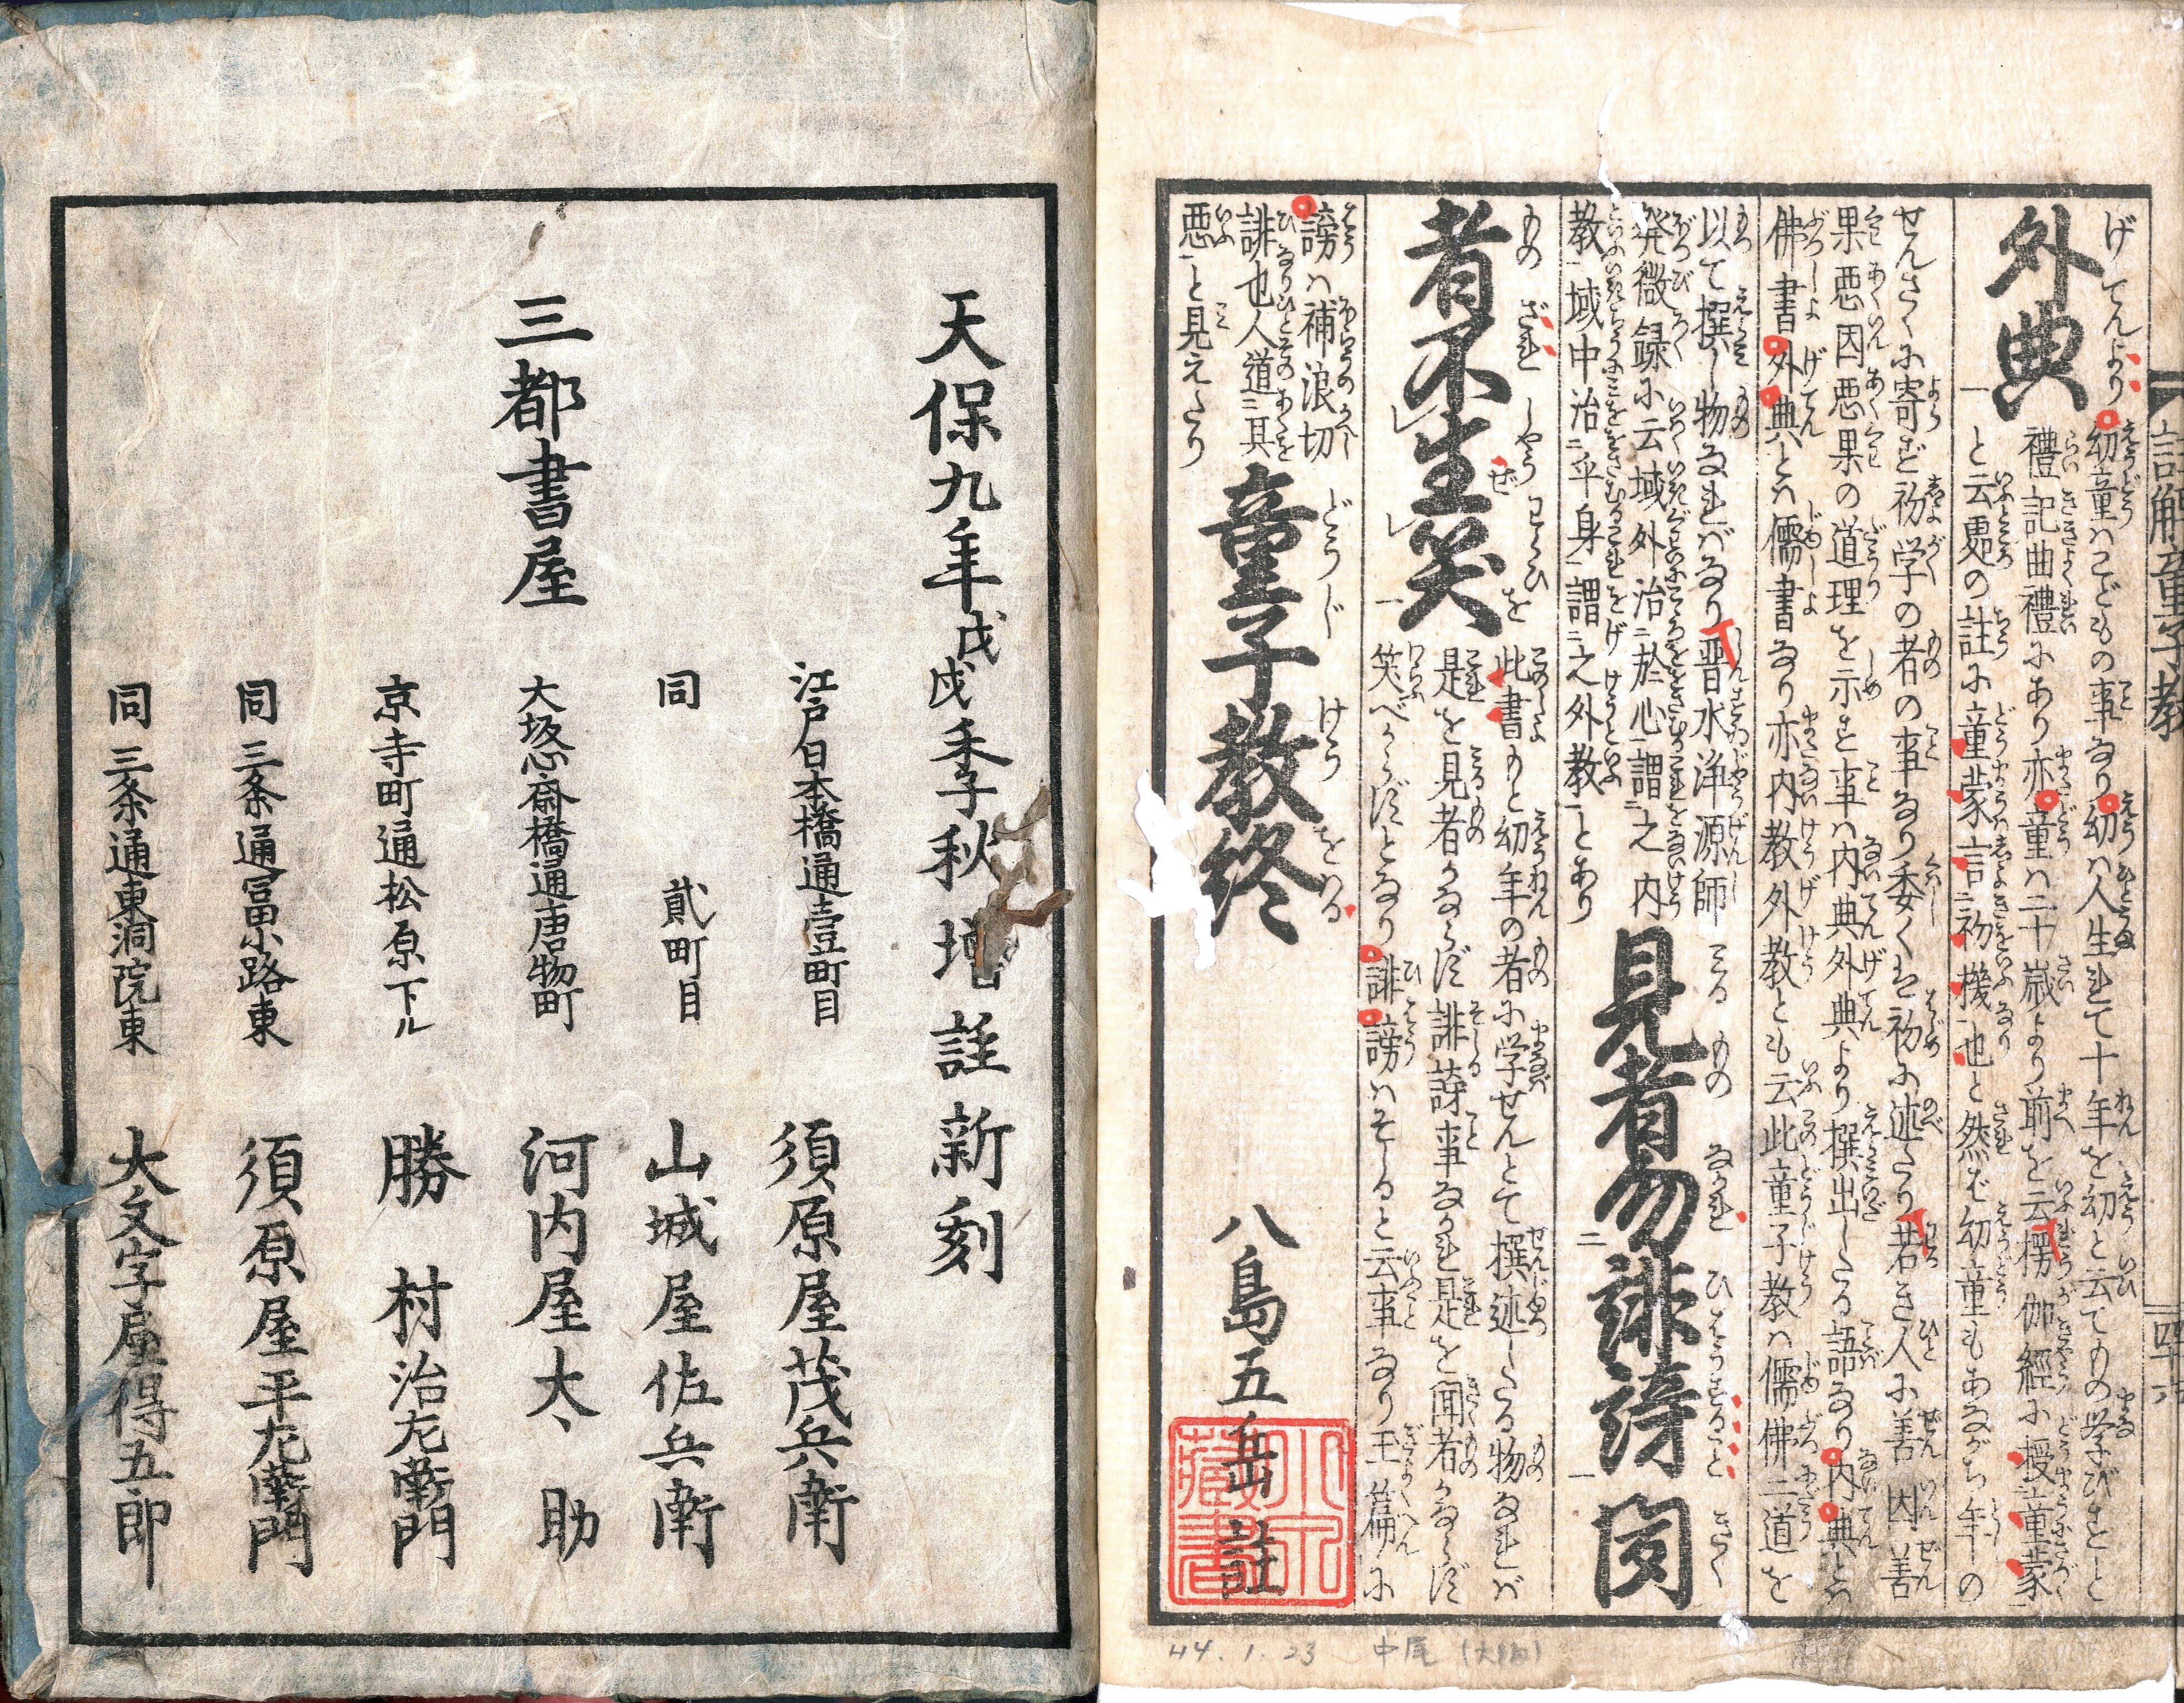 註解童子教
四十六
外典
げてんより
幼童ハこどもの事なり幼ハ人生れて十年を幼と云てもの学びすと
禮記曲禮にあり亦童ハ二十歳より前を云楞伽經に授童蒙
と云處の註に童蒙言初機也と然ば幼童もあながち年の
せんさくに寄ず初学の者の事なり委くは初に述たり若き人に善因善
果悪因悪果の道理を示す事ハ内典外典より撰出したる語なり内典とハ
佛書外典とハ儒書なり亦内教外教とも云此童子教ハ儒佛二道を
以て撰し物なればなり晋水浄源師
発微録に云域外治於心謂之内
教域中治乎身謂之外教とあり
見者勿誹謗聞
みるもの なかれ ひばうすること きく
者不生笑
もの ざれ しやうぜ わらひを
此書もと幼年の者に学せんとて撰述したる物なれば
是を見者かならず誹謗事なかれ是を聞者かならず
笑べからずとなり誹謗ハそしると云事なり玉篇に
謗ハ補浪切
誹也人道其
悪と見えたり
童子教終
どうじけうをはる
八島五岳註
藏書
44.1.23 中尾
天保九年戊戌季秋増註新刻
三都書屋
江戸日本橋通壹町目 須原屋茂兵衛
同 貳町目 山城屋佐兵衛
大坂心斎橋通唐物町 河内屋太助
京寺町通松原下ル 勝村治右衛門
同三条通冨小路東 須原屋平左衛門
同三条通東洞院東 大文字屋得五郎